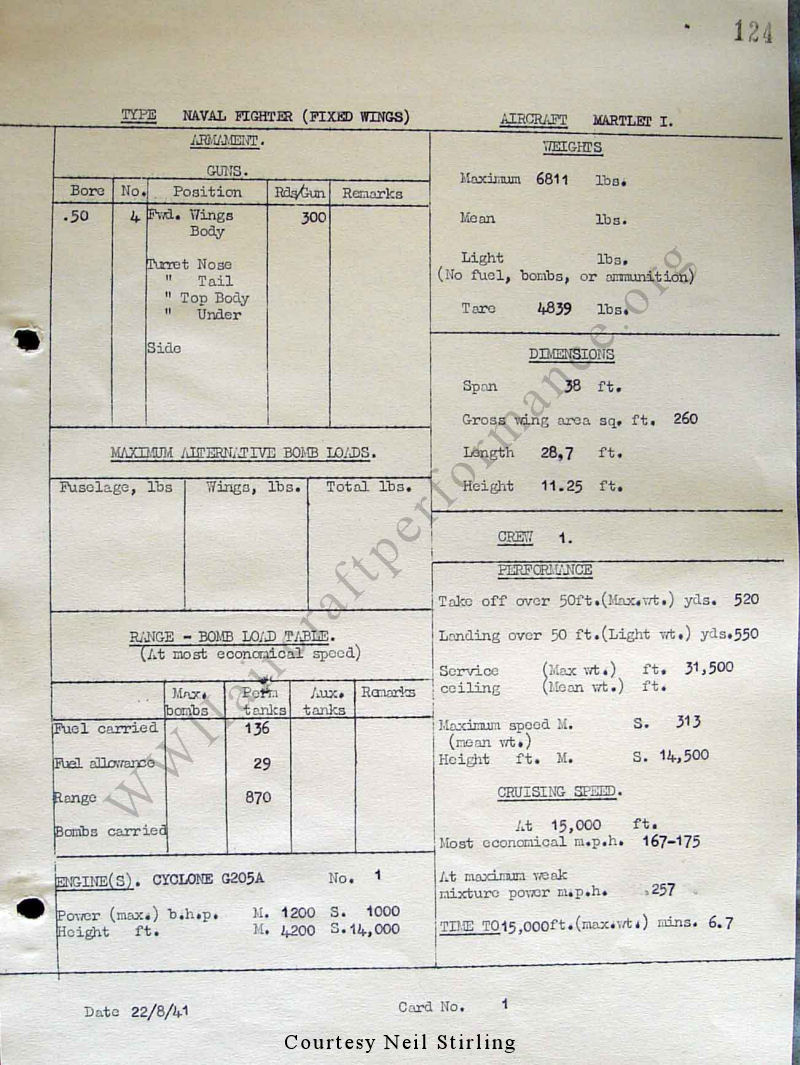 124
TYPE NAVAL FIGHTER (FIXED WINGS) AIRCRAFT MARTLET I.
ARMAMENT.
GUNS.
Bore No. Position Rds/Gun Remarks
.50 4 Fwd. Wings 300
Body
Turret Nose
" Tail
" Top Body
" Under
Side
MAXIMUM ALTERNATIVE BOMB LOADS.
Fuselage, lbs Wings, lbs. Total lbs.
RANGE - BOMB LOAD TABLE.
(At most economical speed)
Max. bombs Perm tanks Aux. tanks Remarks
Fuel carried 136
Fuel allowance 29
Range 870
Bombs carried
ENGINE(S). CYCLONE G205A No. 1
Power (max.) b.h.p. M. 1200 S. 1000
Height ft. M. 4200 S.14,000
WEIGHTS
Maximum 6811 lbs.
Mean lbs.
Light lbs.
(No fuel, bombs, or ammunition)
Tare 4839 lbs.
DIMENSIONS
Span 38 ft.
Gross wing area sq. ft. 260
Length 28,7 ft.
Height 11.25 ft.
CREW 1.
PERFORMANCE
Take off over 50ft.(Max.wt.) yds. 520
Landing over 50 ft.(Light wt.) yds.550
Service (Max wt.) ft. 31,500
ceiling (Mean wt.) ft.
Maximum speed M. S. 313
(mean wt.)
Height ft. M. S. 14,500
CRUISING SPEED.
At 15,000 ft.
Most economical m.p.h. 167-175
At maximum weak
mixture power m.p.h. 257
TIME TO15,000ft.(max.wt.) mins. 6.7
Date 22/8/41 Card No. 1
www.wwiiaircraftperformance.org
Courtesy Neil Stirling